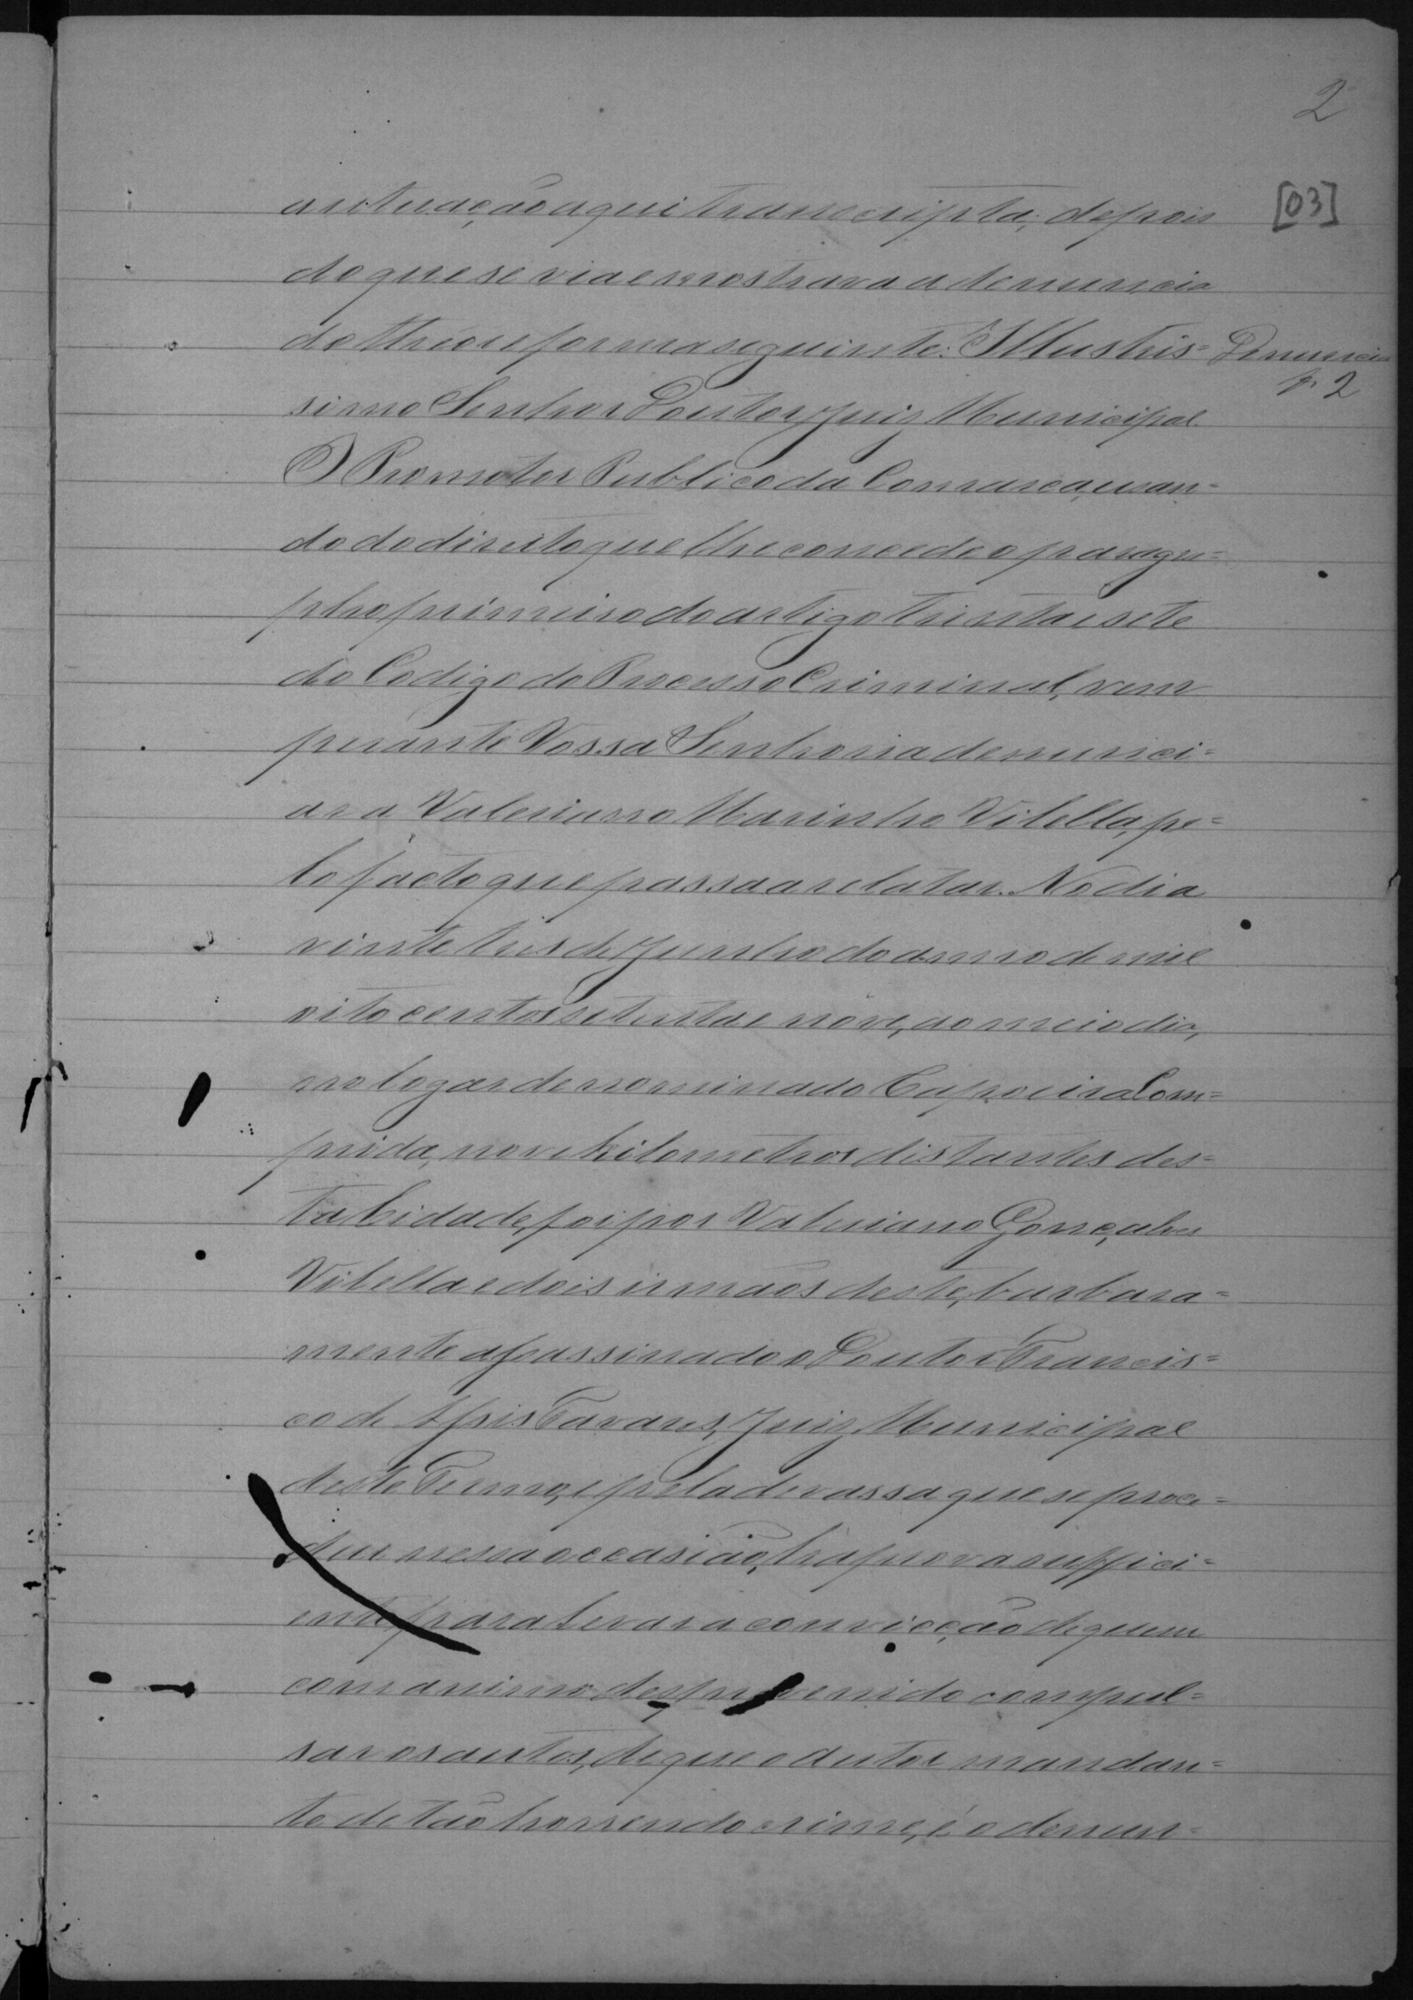 2
[03]
autuação aqui transcripta; depois
do que se via e mostrava a denuncia
do thêor e forma seguinte: Illustris=
Denuncia
p. 2
simo Senhor Doutor Juiz Municipal
O Promotor Publico da Comarca, usan=
do do direito que lhe concede o paragra=
pho primeiro do artigo trinta e sete
do Codigo do Processo Criminal, vem
perante Vossa Senhoria denunci=
ar a Valeriano Marinho Vilella, pe=
lo facto que passa a relatar. No dia
vinte tres de Junho do anno de mil
oito centos setenta e nove, ao meio dia,
no logar denominado Capoeira Com=
prida, nove kilometros distantes des=
ta Cidade, foi por Valeriano Gonçalves
Vilella e dois irmãos deste, barbara=
mente assassinado o Doutor Francis=
co de Assis Tavares, Juiz Municipal
deste Termo, e pela devassa que se proce=
deu nessa occasião, ha prova suffici=
ente para levar a convicção de quem
com animo desprevenido compul=
sar os autos, de que o autor mandan=
te de tão horrendo crime, é o denun=